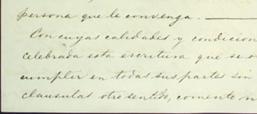 persona que le convenga.
Con cuyas calidades y condicion
celebrada esta escritura que se o
cumplir en todas sus partes sin
clausulas otro sentido, comente n